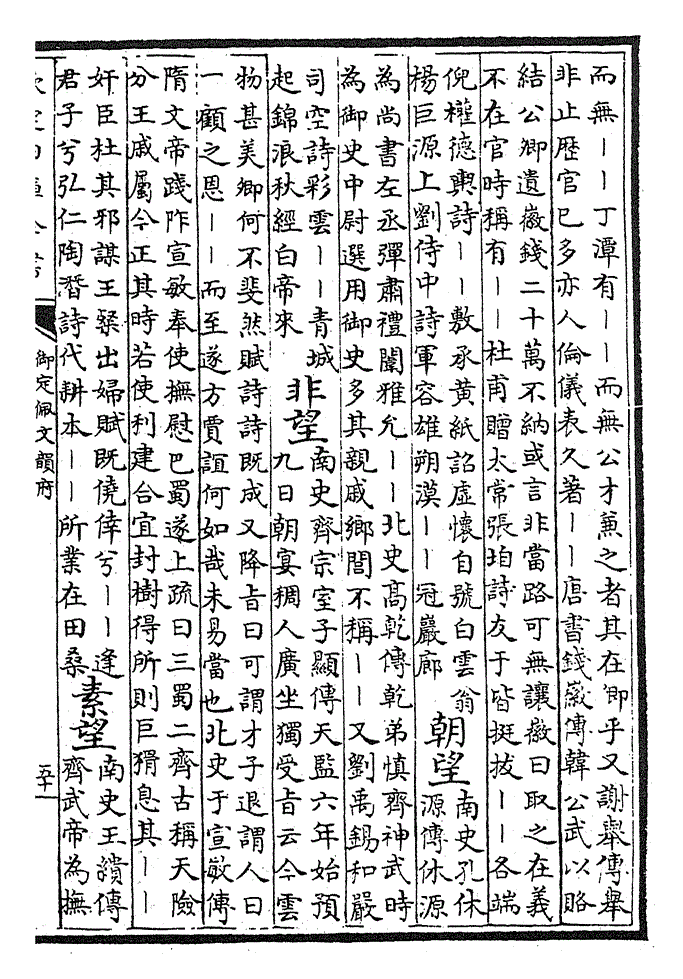 而無丨丨丁潭有丨丨而無公才兼之者其在卿乎又謝舉傳舉
非止歷官已多亦人倫儀表久著丨丨唐書錢徽傳韓公武以賂
結公卿遺徽錢二十萬不納或言非當路可無讓徽曰取之在義
不在官時稱有丨丨杜甫贈太常張垍詩友于皆挺拔丨丨各端
倪權德輿詩丨丨敷承黃紙詔虛懷自號白雲翁
楊巨源上劉侍中詩軍容雄朔漠丨丨冠巖廊
朝望
南史孔休
源傳休源
為尚書左丞彈肅禮闈雅允丨丨北史高乾傳乾弟慎齊神武時
為御史中尉選用御史多其親戚鄉閭不稱丨丨又劉禹錫和嚴
司空詩彩雲丨丨青城
起錦浪秋經白帝來
非望
南史齊宗室子顯傳天監六年始預
九日朝宴稠人廣坐獨受旨云今雲
物甚美卿何不斐然賦詩詩既成又降旨曰可謂才子退謂人曰
一顧之恩丨丨而至遂方賈誼何如哉未易當也北史于宣敏傳
隋文帝踐阼宣敏奉使撫慰巴蜀遂上疏曰三蜀二齊古稱天險
分王戚屬今正其時若使利建合宜封樹得所則巨猾息其丨丨
奸臣杜其邪謀王粲出婦賦既僥倖兮丨丨逢
君子兮弘仁陶潛詩代耕本丨丨所業在田桑
素望
南史王繢傳
齊武帝為撫
御定佩文韻府